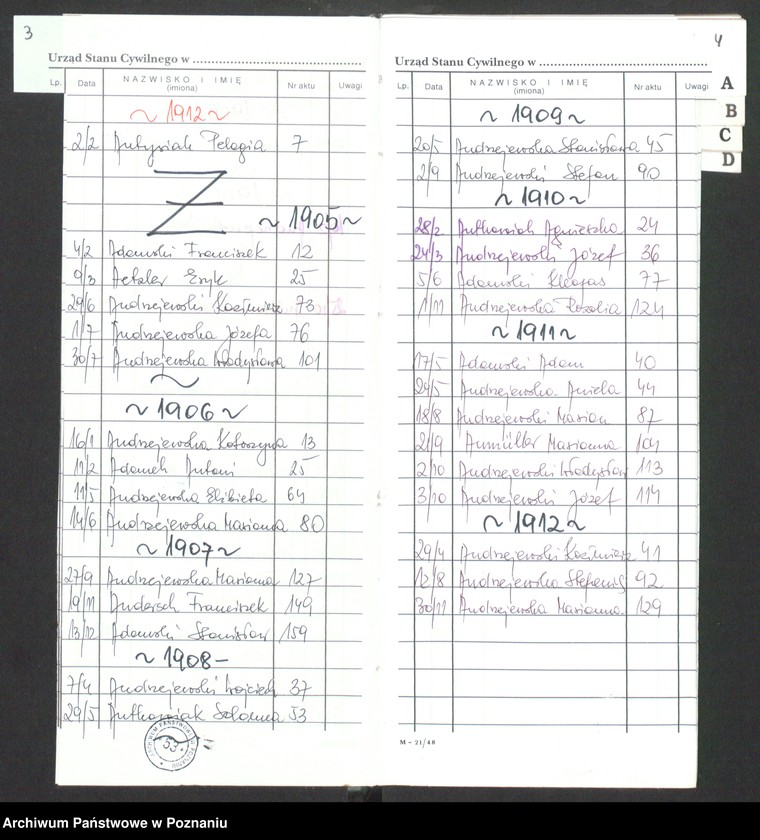 3
Urząd Stanu Cywilnego w
Lp. Data NAZWISKO I IMIĘ (imiona) Nr aktu Uwagi
~ 1912 ~
2/2 Antysiak Pelagia 7
Z
~ 1905 ~
4/2 Adamski Franciszek 12
9/3 Aetzler Eryk 25
29/6 Andrzejewski Kazimierz 73
1/7 Andrzejewska Józefa 76
30/7 Andrzejewska Władysława 101
~
~ 1906 ~
16/1 Andrzejewska Katarzyna 13
11/2 Adamek Antoni 25
11/5 Andrzejewska Elżbieta 64
14/6 Andrzejewska Marianna 80
~ 1907 ~
27/9 Andrzejewska Marianna 127
19/11 Andersch Franciszek 149
13/12 Adamski Stanisław 159
~ 1908 –
7/4 Andrzejewski Wojciech 37
29/5 Antkowiak 53
ARCHIWUM PAŃSTWOWE W POZNANIU
33
4
Urząd Stanu Cywilnego w
Lp. Data NAZWISKO I IMIĘ (imiona) Nr aktu Uwagi
A
B
C
D
~ 1909 ~
20/5 Andrzejewska Stanisława 45
2/9 Andrzejewski Stefan 90
~ 1910 ~
28/2 Antkowiak Agnieszka 24
24/3 Andrzejewski Józef 36
5/6 Adamski Kleofas 77
1/11 Andrzejewska Rozalia 124
~ 1911 ~
17/5 Adamski Adam 40
24/5 Andrzejewska Aniela 44
18/8 Andrzejewski Marian 87
21/9 Aumüller Marianna 104
2/10 Andrzejewski Władysław 113
3/10 Andrzejewski Józef 114
~ 1912 ~
29/4 Andrzejewski Kazimierz 41
12/8 Andrzejewska Stefania 92
30/11 Andrzejewska Marianna 129
M – 21/48
Archiwum Państwowe w Poznaniu